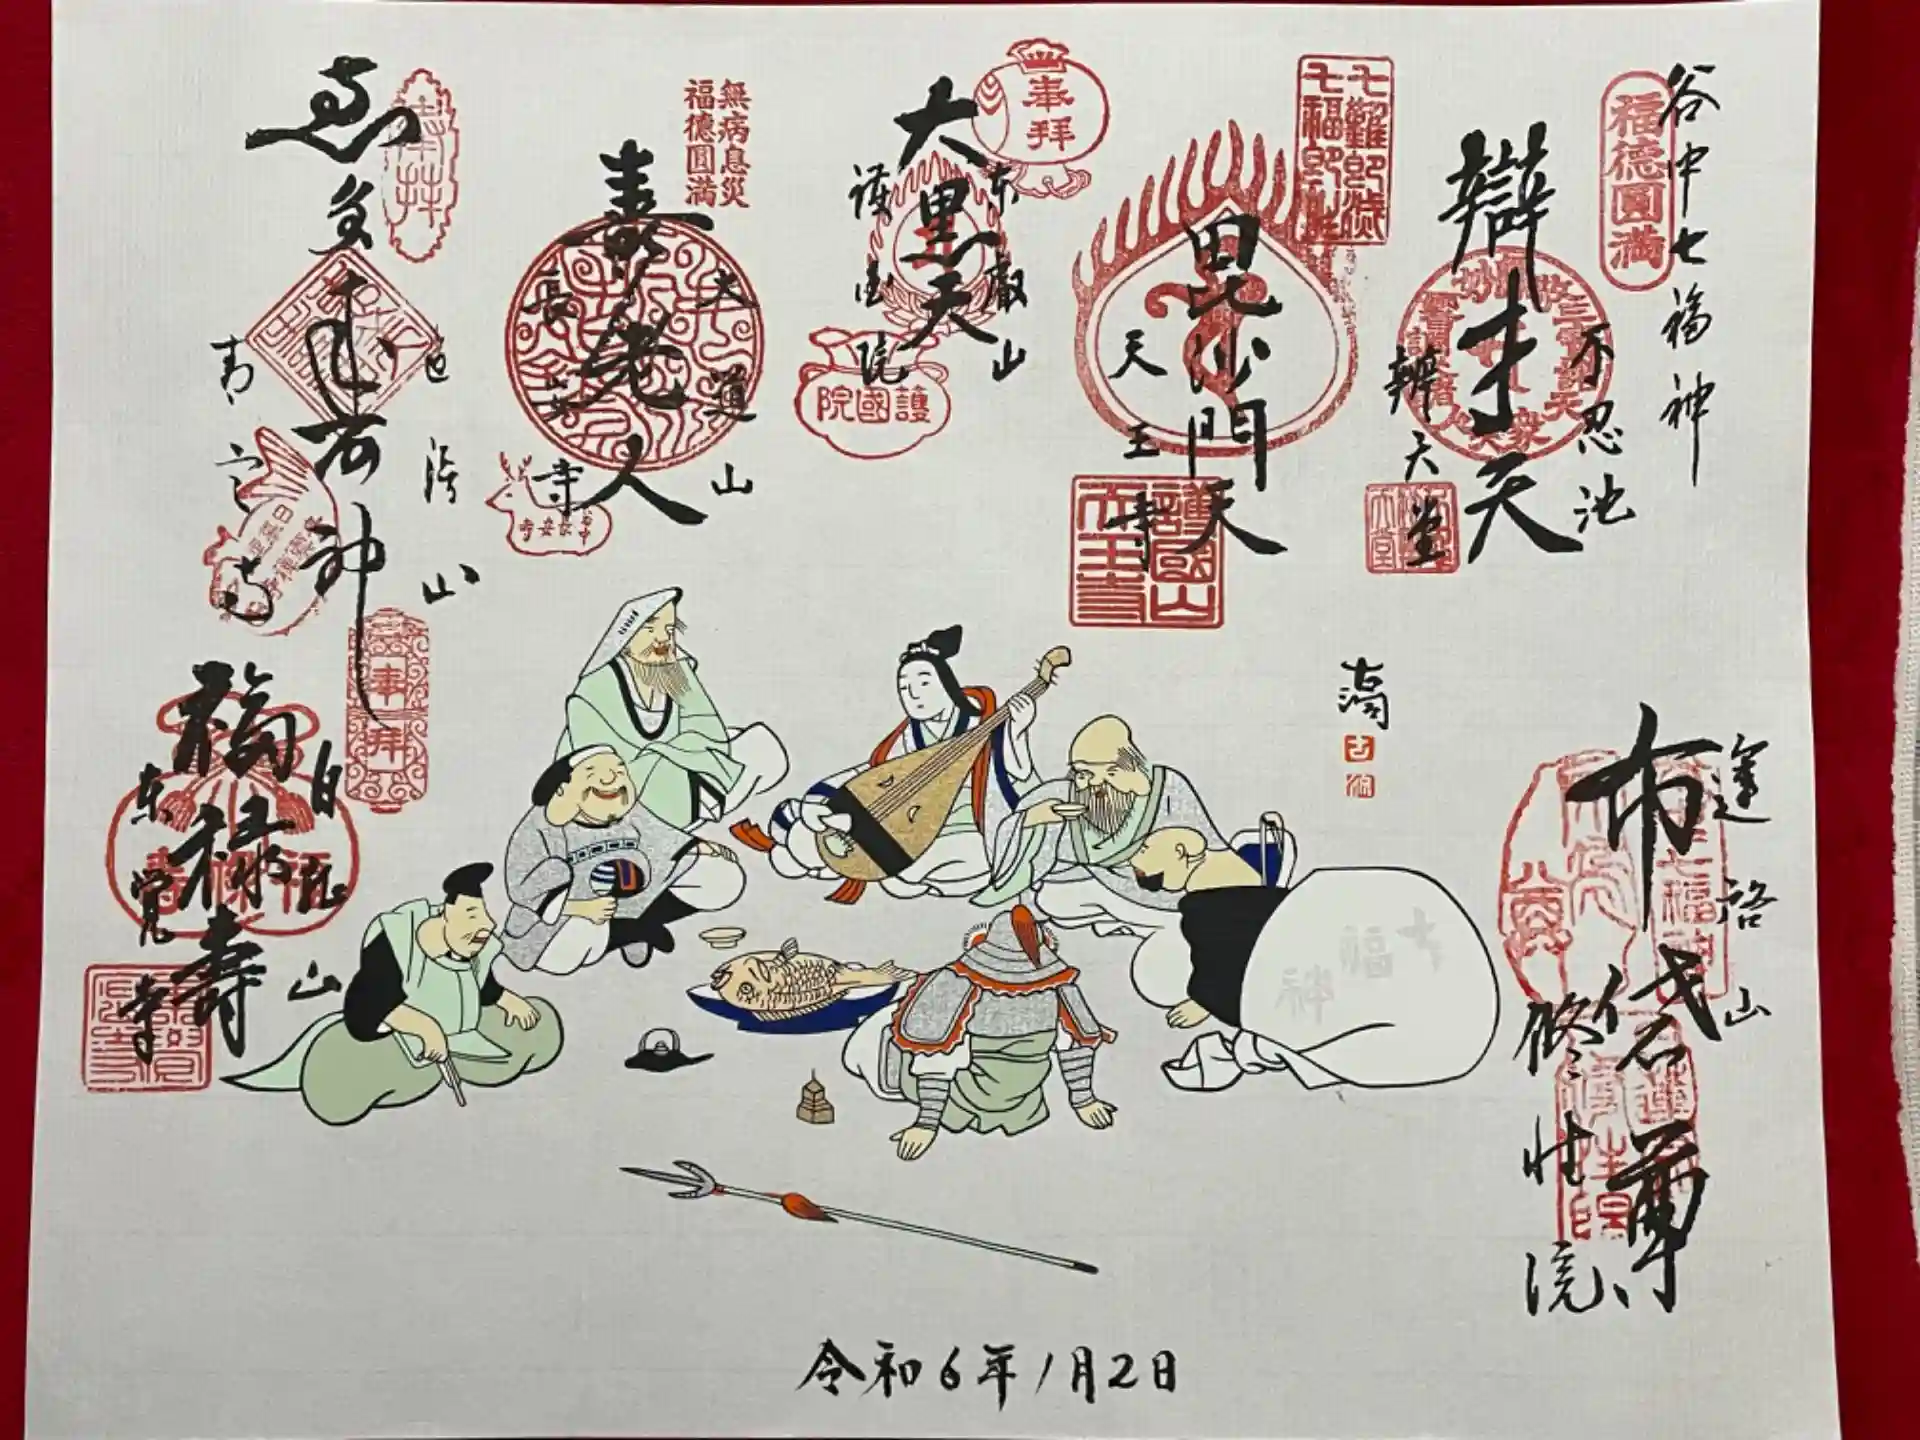 谷中七福神
福徳圓満
辯才天
不忍池
辨天堂
七難即滅
七福即生
毘沙門天
天王寺
護國山
天王寺
奉拝
大黒天
東叡山
護国院
護國院
無病息災
福徳圓満
寿老人
大道山
長安寺
谷中
長安寺
奉拝
恵比寿神
青雲寺
奉拝
福禄寿
白龍山
東覚寺
福禄寿
布袋尊
蓬谷山
修性院
七福神
令和6年1月2日